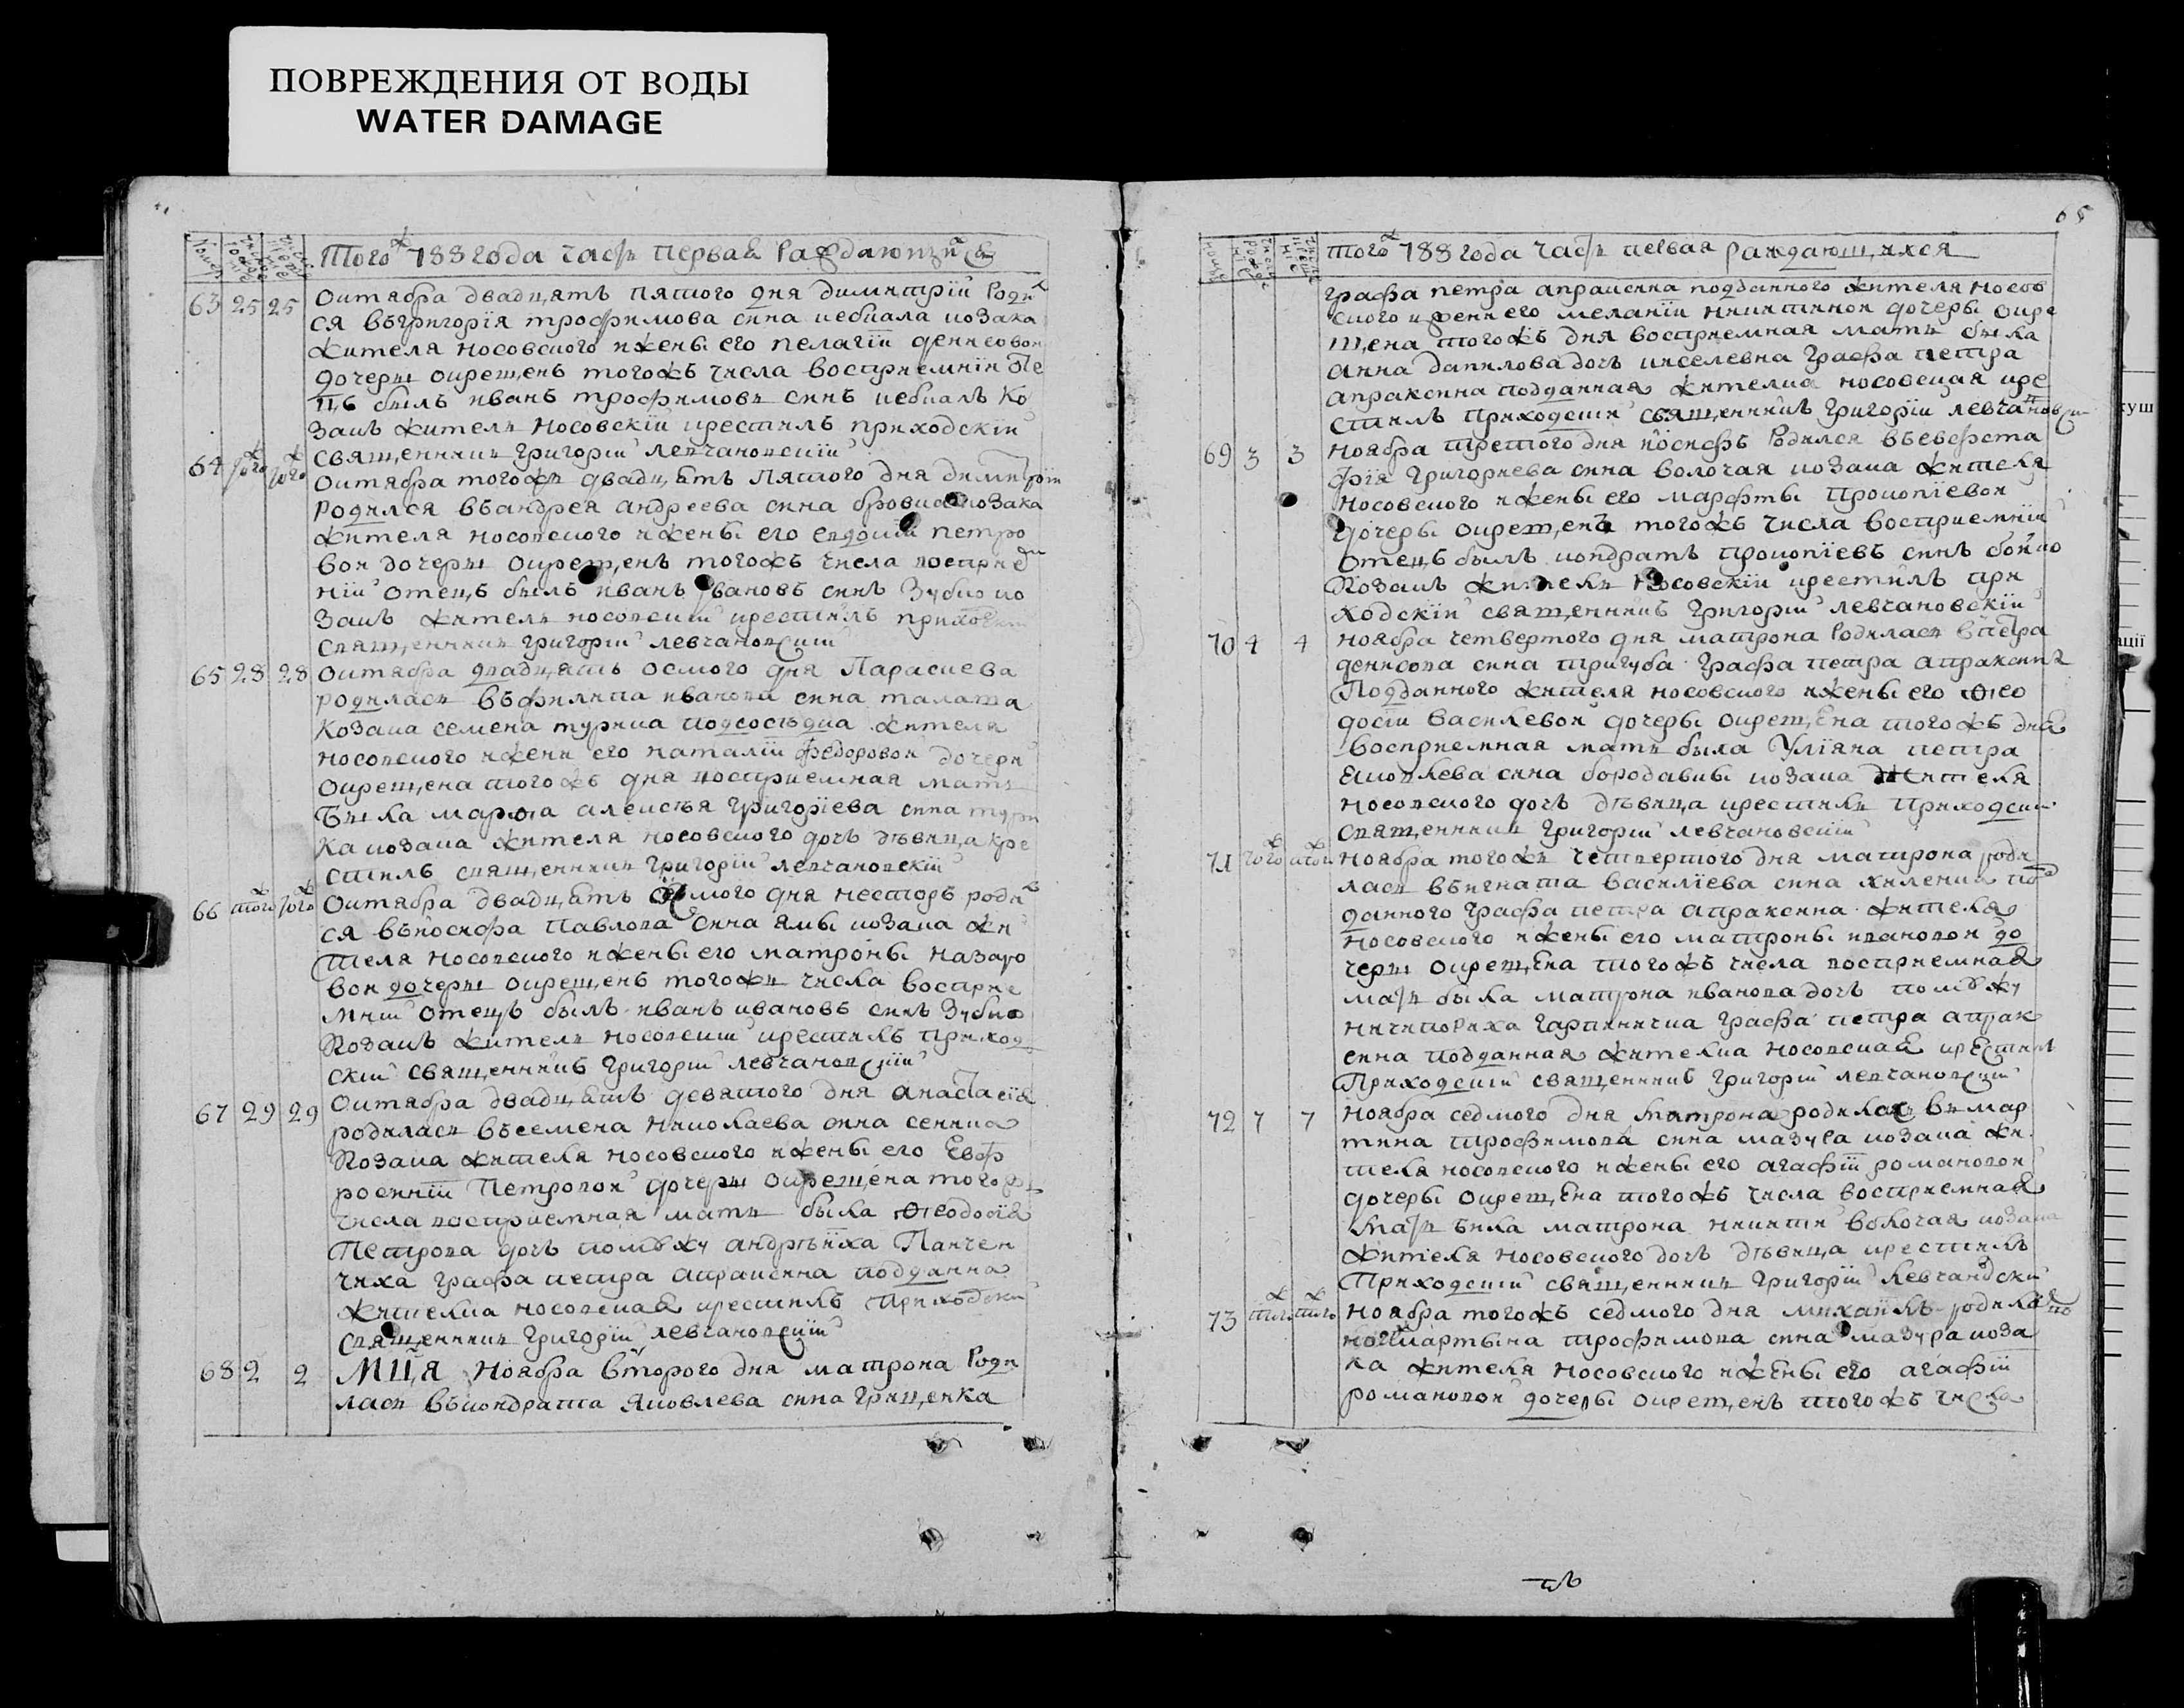 ПОВРЕЖДЕНИЯ ОТ ВОДЫ
WATER DAMAGE
Того ж 788 года часть первая раждающихся
63 25 25 Октября двадцять пятого дня димитрїй роди
ся въ григорїя трофимова сина кебкала козака
жителя носовского и жены его пелагїи денисовой
дочеры окрещенъ тогожъ числа восприемнїи оте
цъ былъ иванъ трофимовъ синъ кебкалъ ко
закъ жытель носовскїй крестилъ приходскїй
священникъ григорїй левчановскїй
64 тогож тогож Октября тогожъ двадцять пятого дня димитрїй
родился въ андрея андреева сина бровка козака
жителя носовского и жены его евдокїи петро
вой дочеры окрещенъ тогожъ числа восприем
нїй отецъ былъ иванъ ивановъ синъ зубко ко
закъ житель носовскїй крестилъ приходскїй
священникъ григорїй левчановскїй
65 28 28 Октября двадцять осмого дня Параскева
родилась въ филипа иванова сина талата
козака семена турика подсоседка жителя
носовского и жены его наталїи федоровой дочеры
окрещена тогожъ дня восприемная мать
была марѳа алексѣя григорїева сина тури
ка козака жителя носовского дочъ дѣвица кре
стилъ священникъ григорїй левчановскїй
66 тогож тогож Октября двадцять осмого дня несторъ роди
ся въ йосифа павлова сина ямы козака жи
теля носовского и жены его матроны назаро
вой дочеры окрещенъ тогожъ числа восприе
мнїй отецъ былъ иванъ ивановъ синъ зубко
козакъ житель носовскїй крестилъ приход
скїй священникъ григорїй левчановскїй
67 29 29 Октября двадцять девятого дня анастасїя
родилась въ семена николаева сина сенка
козака жителя носовского и жены его Евф
росинїи Петровой дочеры окрещена тогожъ
числа восприемная мать была ѳеодосїя
Петрова дочъ по мужу андрѣиха Панчен
чиха графа петра апраксина подданна
жителка носовская крестилъ приходскїй
священникъ григорїй левчановскїй
68 2 2 МЦЯ Ноября второго дня матрона роди
лась въ кондрата яковлева сина грищенка
65
того ж 788 года часть первая раждающихся
графа петра апраксина подданного жителя носов
ского и жени его меланїи никитиной дочеры окре
щена тогожъ дня восприемная мать была
анна данилова дочъ киселевна графа петра
апраксина подданная жителка носовская кре
стилъ приходскїй священникъ григорїй левчановскїй
69 3 3 Ноября третого дня йосифъ родился въ евста
фїя григориева сина волочая козака жителя
носовского и жены его марфты прокопїевой
дочеры окрещенъ тогожъ числа восприемнїй
отецъ былъ кондратъ прокопїевъ синъ бойко
козакъ житель носовскїй крестилъ при
ходскїй священникъ григорїй левчановскїй
70 4 4 Ноября четвертого дня матрона родилась въ петра
денисова сина тригуба графа петра апраксина
подданного жителя носовского и жены его ѳео
досїи василевой дочеры окрещена тогожъ дня
восприемная мать была улїяна петра
яковлева сина бородавкы козака жителя
носовского дочъ дѣвица крестилъ приходскїй
священникъ григорїй левчановскїй
71 тогож тогож Ноября тогожъ четвертого дня матрона роди
лась въ игната василїева сина хиленка под
данного графа петра апраксина жителя
носовского и жены его матроны ивановой до
черы окрещена тогожъ числа восприемная
мать была матрона иванова дочъ по мужу
ничипориха гарпинична графа петра апрак
сина подданная жителка носовская крестилъ
приходскїй священникъ григорїй левчановскїй
72 7 7 Ноября седмого дня матрона родилась въ мар
тина трофимова сина мазура козака жи
теля носовского и жены его агафїи романовой
дочеры окрещена тогожъ числа восприемная
мать была матрона никити волочая козака
жителя носовского дочъ дѣвица крестилъ
приходскїй священникъ григорїй левчановскїй
73 тогож тогож Ноября тогожъ седмого дня михаилъ родил
мартына трофимова сина мазура коза
ка жителя носовского и жены его агафїи
романовой дочеры окрещенъ тогожъ числа